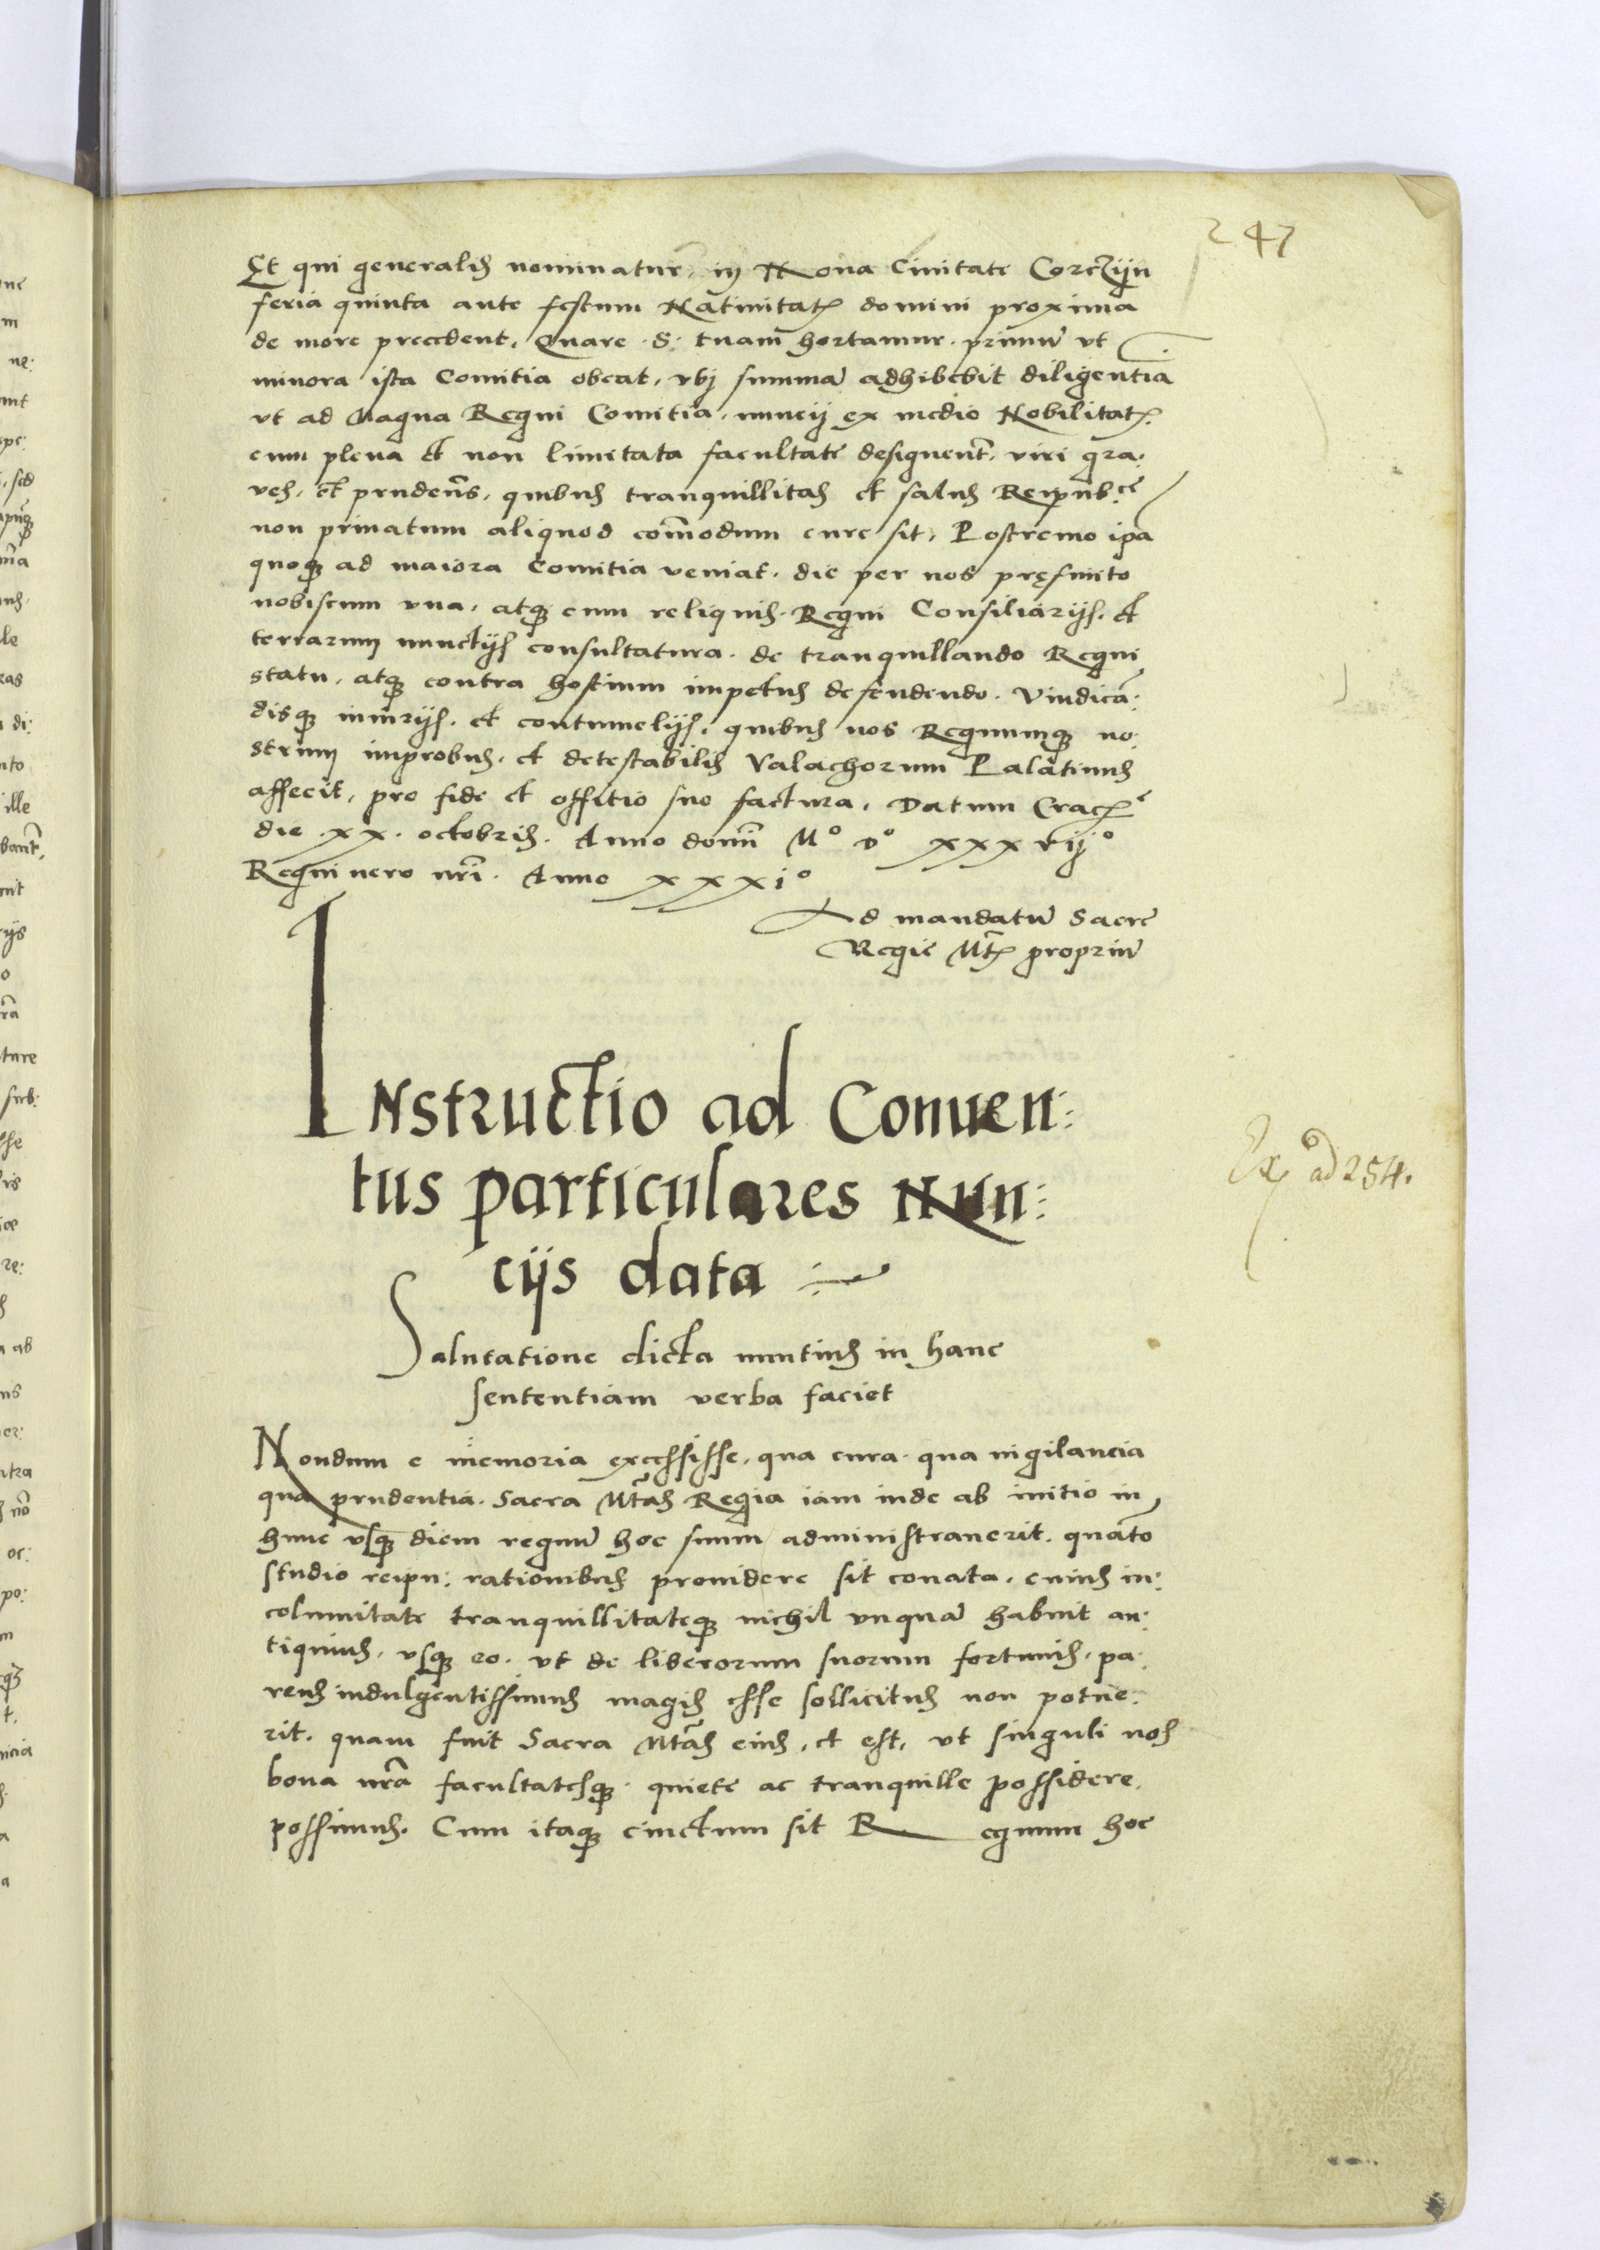 247
Et qui generalis nominatur, in Noua Ciuitate Corczijn
feria quinta ante festum Natiuitatis domini proxima
de more precedent. Quare S. tuam hortamur, primũ vt
minora ista Comitia obeat, vbi summã adhibebit diligentiã
vt ad Magna Regni Comitia, nuncij ex medio Nobilitatis
cum plena et non limitata facultate designent̃, viri gra:
ues, et prudentes, quibus tranquillitas et salus Reipub:ce
non priuatum aliquod com̃odum cure sit, Postremo ipa
quoq ad maiora Comitia veniat, die per nos pręfinito
nobiscum vna, atq cum reliquis Regni Consiliarijs, et
terrarum nunctijs consultatura de tranquillando Regni
statu, atq contra hostium impetus defendendo. Vindicã:
disq iniurijs, et contumelijs, quibus nos Regnumq no:
strum improbus, et detestabilis Valachorum Palatinus
affecit, pro fide et offitio suo factura. Datum Cracę
die .xx. octobris. Anno domini Mº Dº xxxvijº
Regni vero nri. Anno xxxiº
Ad mandatũ Sacre
Regie Mtis propriũ
INstructio ad Conuen:
tus particulares Nun:
cijs data
Salutatione dicta nuntius in hanc
sententiam verba faciet
Nondum e memoria excessisse, qua cura, qua uigilancia
qua prudentia, Sacra Mtas Regia iam inde ab initio in
hunc vsq diem regnũ hoc suum administrauerit, quãto
studio reipu: rationibus prouidere sit conata, cuius in:
columitate tranquillitateq nichil vnquã habuit an:
tiquius, vsq eo, vt de liberorum suorum fortunis, pa:
rens indulgentissimus magis esse sollicitus non potue:
rit, quam fuit Sacra Mtas eius, et est, vt singuli nos
bona nrã facultatesq quiete ac tranquille possidere
possimus. Cum itaq cinctum sit Regnum hoc
Ex ad 254.